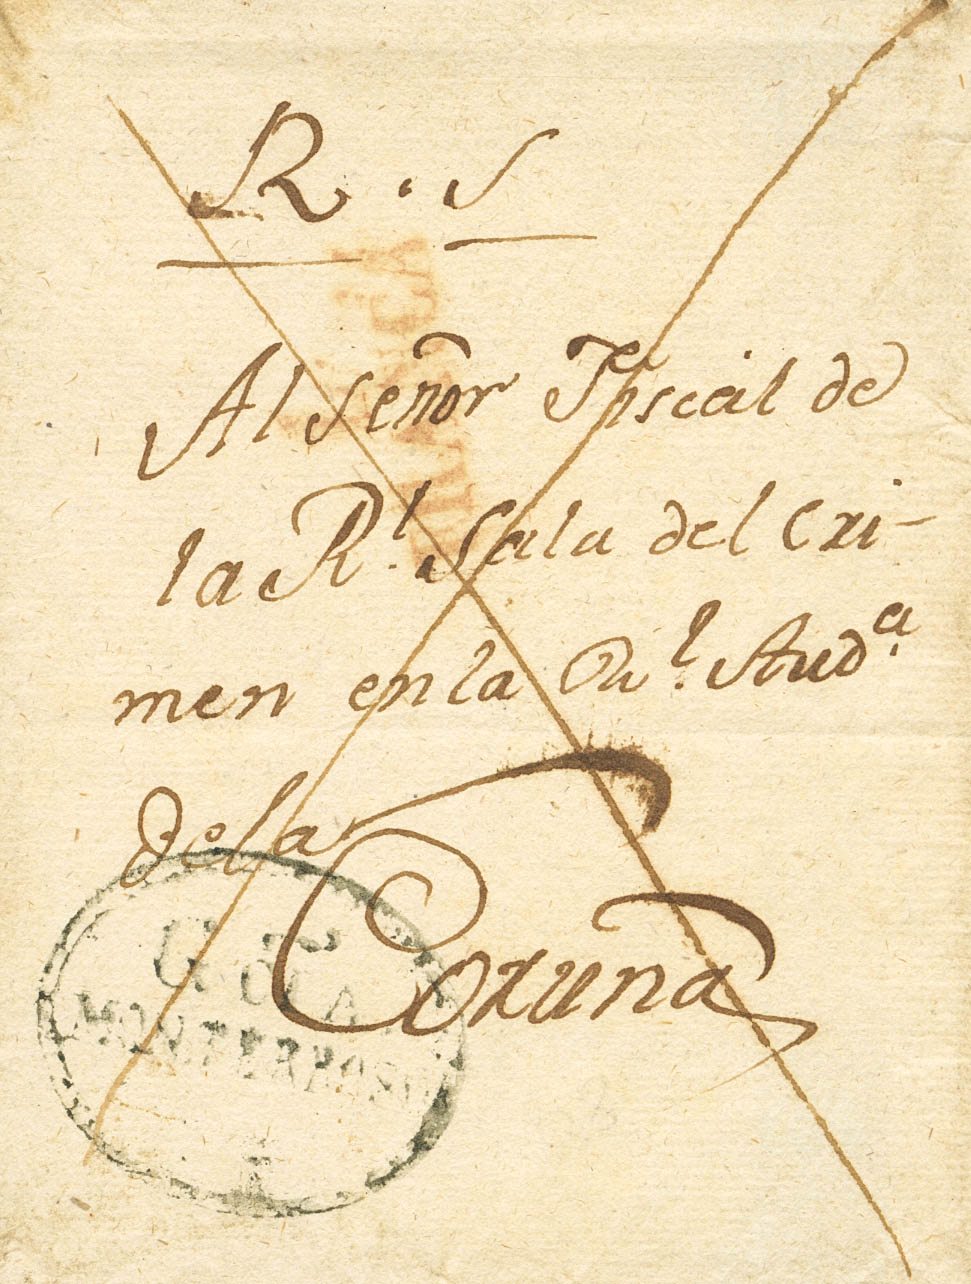 R. S
Al Señor Fiscal de
la Rl. Sala del Cri-
men en la Rl. Auda.
de la
Coruña
MONTERROSO